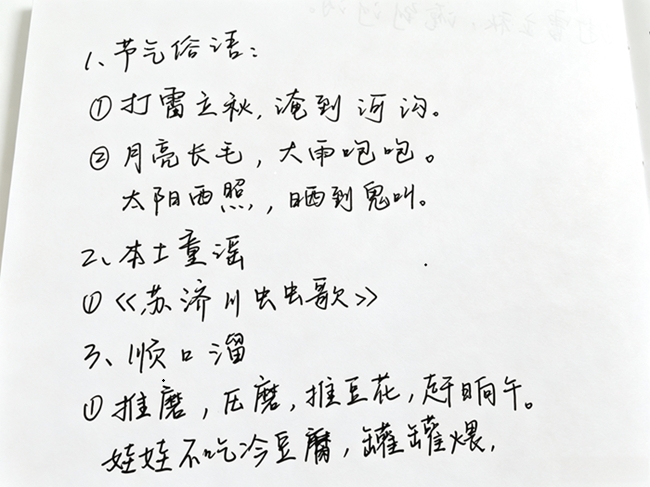 1、节气俗语：
①打雷立秋，淹到河沟。
②月亮长毛，大雨咆咆。
太阳西照，晒到鬼叫。
2、本土童谣
①《苏济川虫虫歌》
3、顺口溜
①推磨，压磨，推豆花，赶晌午。
娃娃不吃冷豆腐，罐罐煨，